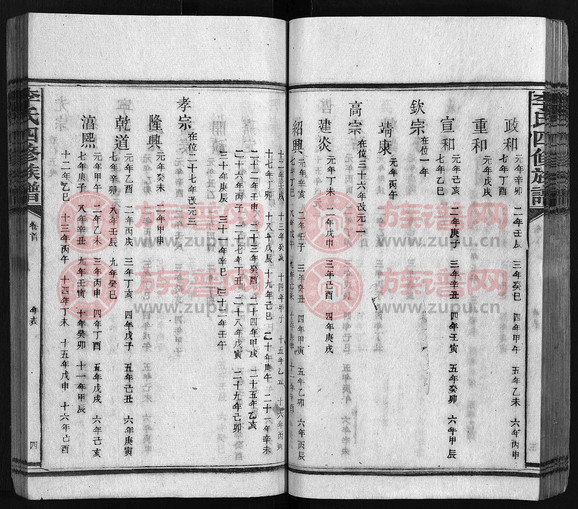 政和 元年辛卯 二年壬辰 三年癸巳 四年甲午 五年乙未 六年丙申
七年丁酉
重和 元年戊戌
宣和 元年己亥 二年庚子 三年辛丑 四年壬寅 五年癸卯 六年甲辰
七年乙巳
欽宗 在位一年
靖康 元年丙午
高宗 在位三十六年改元二
建炎 元年丁未 二年戊申 三年己酉 四年庚戌
紹興 元年辛亥 二年壬子 三年癸丑 四年甲寅 五年乙卯 六年丙辰
七年丁巳
十七年丁卯 十八年戊辰 十九年己巳 二十年庚午 二十一年辛未
二十二年壬申 二十三年癸酉 二十四年甲戌 二十五年乙亥
二十六年丙子 二十七年丁丑 二十八年戊寅 二十九年己卯
三十年庚辰 三十一年辛巳 三十二年壬午
孝宗 在位二十七年改元三
隆興 元年癸未 二年甲申
乾道 元年乙酉 二年丙戌 三年丁亥 四年戊子 五年己丑 六年庚寅
七年辛卯 八年壬辰 九年癸巳
淳熙 元年甲午 二年乙未 三年丙申 四年丁酉 五年戊戌 六年己亥
七年庚子 八年辛丑 九年壬寅 十年癸卯 十一年甲辰
十二年乙巳 十三年丙午 十四年丁未 十五年戊申 十六年己酉
李氏四修族譜
卷首
年表
四
李氏四修族譜
族谱网
www.zupu.cn
族谱网
www.zupu.cn
族谱网
www.zupu.cn
族谱网
www.zupu.cn